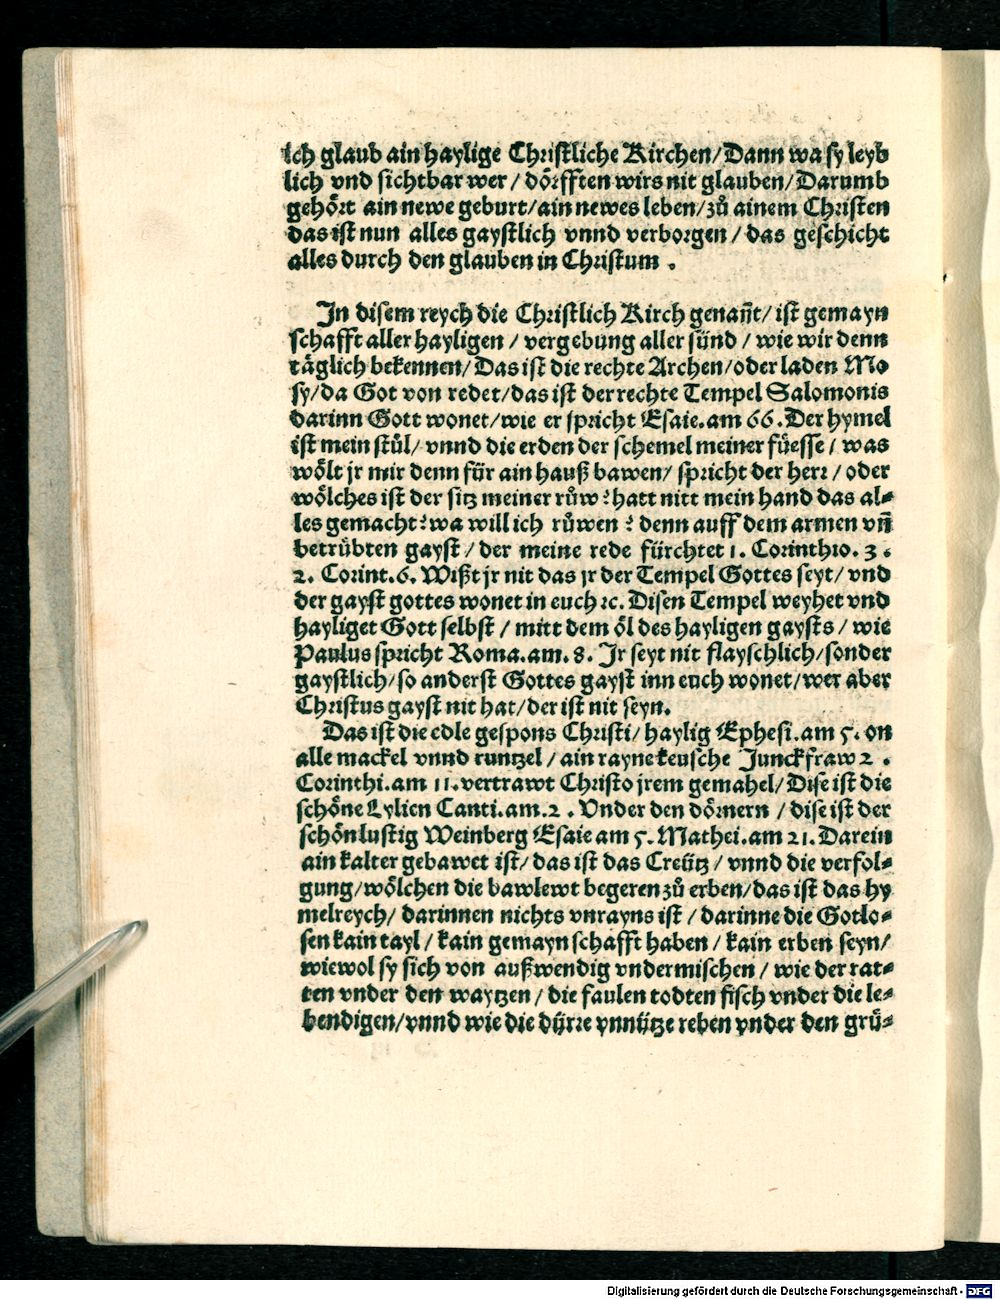 ich glaub ain haylige Christliche Kirchen/Dann wa sy leyb
lich vnd sichtbar wer / dörfften wirs nit glauben/Darumb
gehört ain newe geburt/ain newes leben/zů ainem Christen
das ist nun alles gaystlich vnnd verborgen / das geschicht
alles durch den glauben in Christum .
In disem reych die Christlich Kirch genañt/ ist gemayn
schafft aller hayligen / vergebung aller sünd / wie wir denn
täglich bekennen/ Das ist die rechte Archen/oder laden Mo
sy/da Got von redet/das ist der rechte Tempel Salomonis
darinn Gott wonet/wie er spricht Esaie.am 66. Der hymel
ist mein stůl/ vnnd die erden der schemel meiner füesse / was
wölt jr mir denn für ain hauß bawen/ spricht der herr / oder
wölches ist der sitz meiner růw? hatt nitt mein hand das al⸗
les gemacht? wa will ich růwen ? denn auff dem armen vñ
betrübten gayst / der meine rede fürchtet 1. Corinthio. 3 .
2. Corint.6. Wißt jr nit das jr der Tempel Gottes seyt/ vnd
der gayst gottes wonet in euch ꝛc. Disen Tempel weyhet vnd
hayliget Gott selbst / mitt dem öl des hayligen gaysts / wie
Paulus spricht Roma.am. 8. Jr seyt nit flayschlich/sonder
gaystlich/so anderst Gottes gayst inn euch wonet/wer aber
Christus gayst nit hat/der ist nit seyn.
Das ist die edle gespons Christi/ haylig Ephesi.am 5. on
alle mackel vnnd runtzel / ain rayne keusche Junckfraw 2 .
Corinthi.am 11.vertrawt Christo jrem gemahel/ Dise ist die
schöne Lylien Canti.am.2 . Vnder den dörnern / dise ist der
schön lustig Weinberg Esaie am 5. Mathei.am 21. Darein
ain kalter gebawet ist/ das ist das Creütz / vnnd die verfol⸗
gung/wölchen die bawlewt begeren zů erben/das ist das hy
melreych/ darinnen nichts vnrayns ist / darinne die Gotlo⸗
sen kain tayl / kain gemaynschafft haben / kain erben seyn/
wiewol sy sich von außwendig vndermischen / wie der rat⸗
ten vnder den waytzen / die faulen todten fisch vnder die le⸗
bendigen/vnnd wie die dürre vnnütze reben vnder den grü⸗
Digitalisierung gefördert durch die Deutsche Forschungsgemeinschaft - DFG